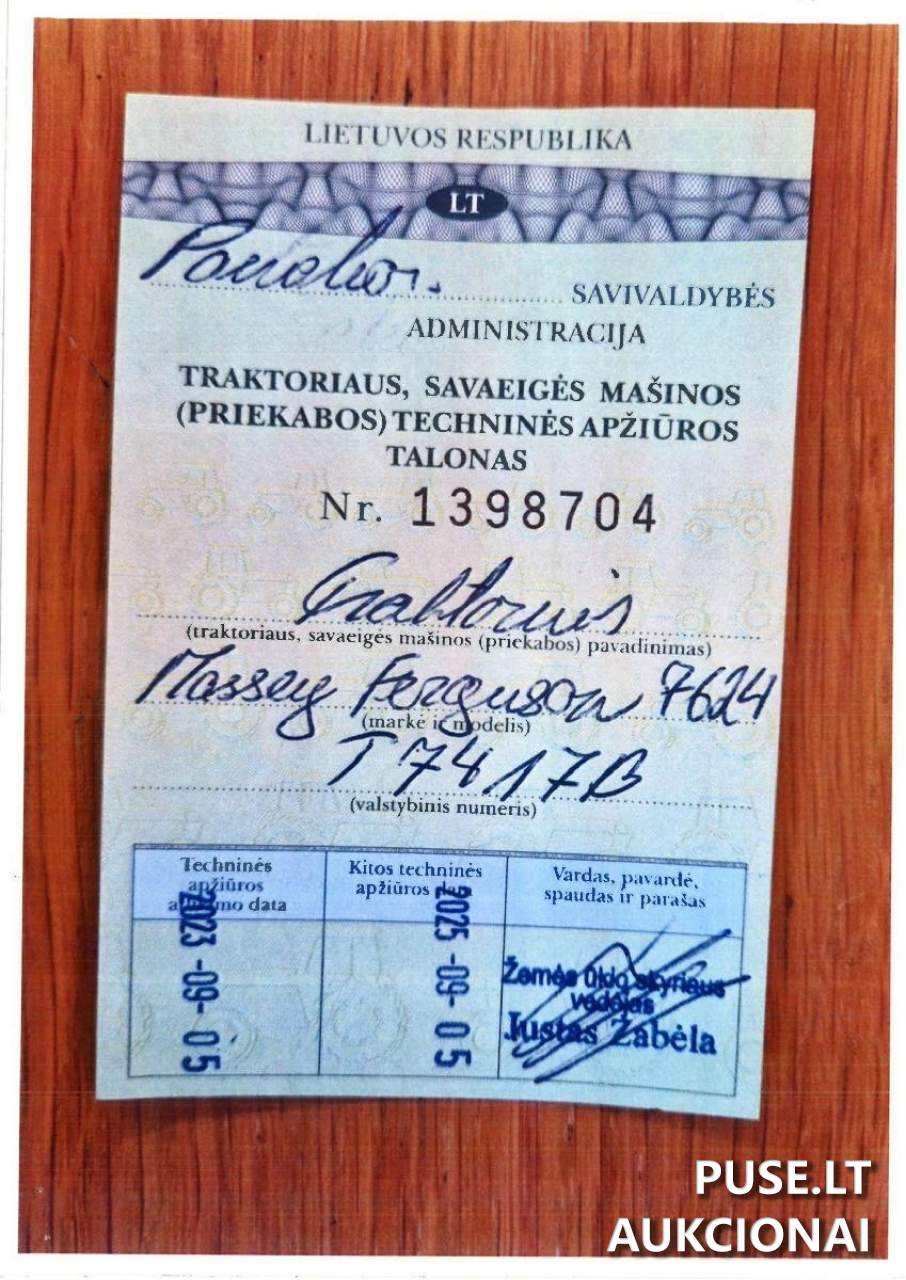 LIETUVOS RESPUBLIKA
LT
SAVIVALDYBĖS
ADMINISTRACIJA
TRAKTORIAUS, SAVAEIGĖS MAŠINOS
(PRIEKABOS) TECHNINĖS APŽIŪROS
TALONAS
Nr. 1398704
Traktorius
(traktoriaus, savaeigės mašinos (priekabos) pavadinimas)
Massey Ferguson 7624
(markė ir modelis)
T 7417B
(valstybinis numeris)
Techninės
apžiūros
data
Kitos techninės
apžiūros
Vardas, pavardė,
spaudas ir parašas
2023-09-05
2025-09-05
Žemės ūkio skyriaus
vedėjas
Justas Žabėla
PUSE.LT
AUKCIONAI